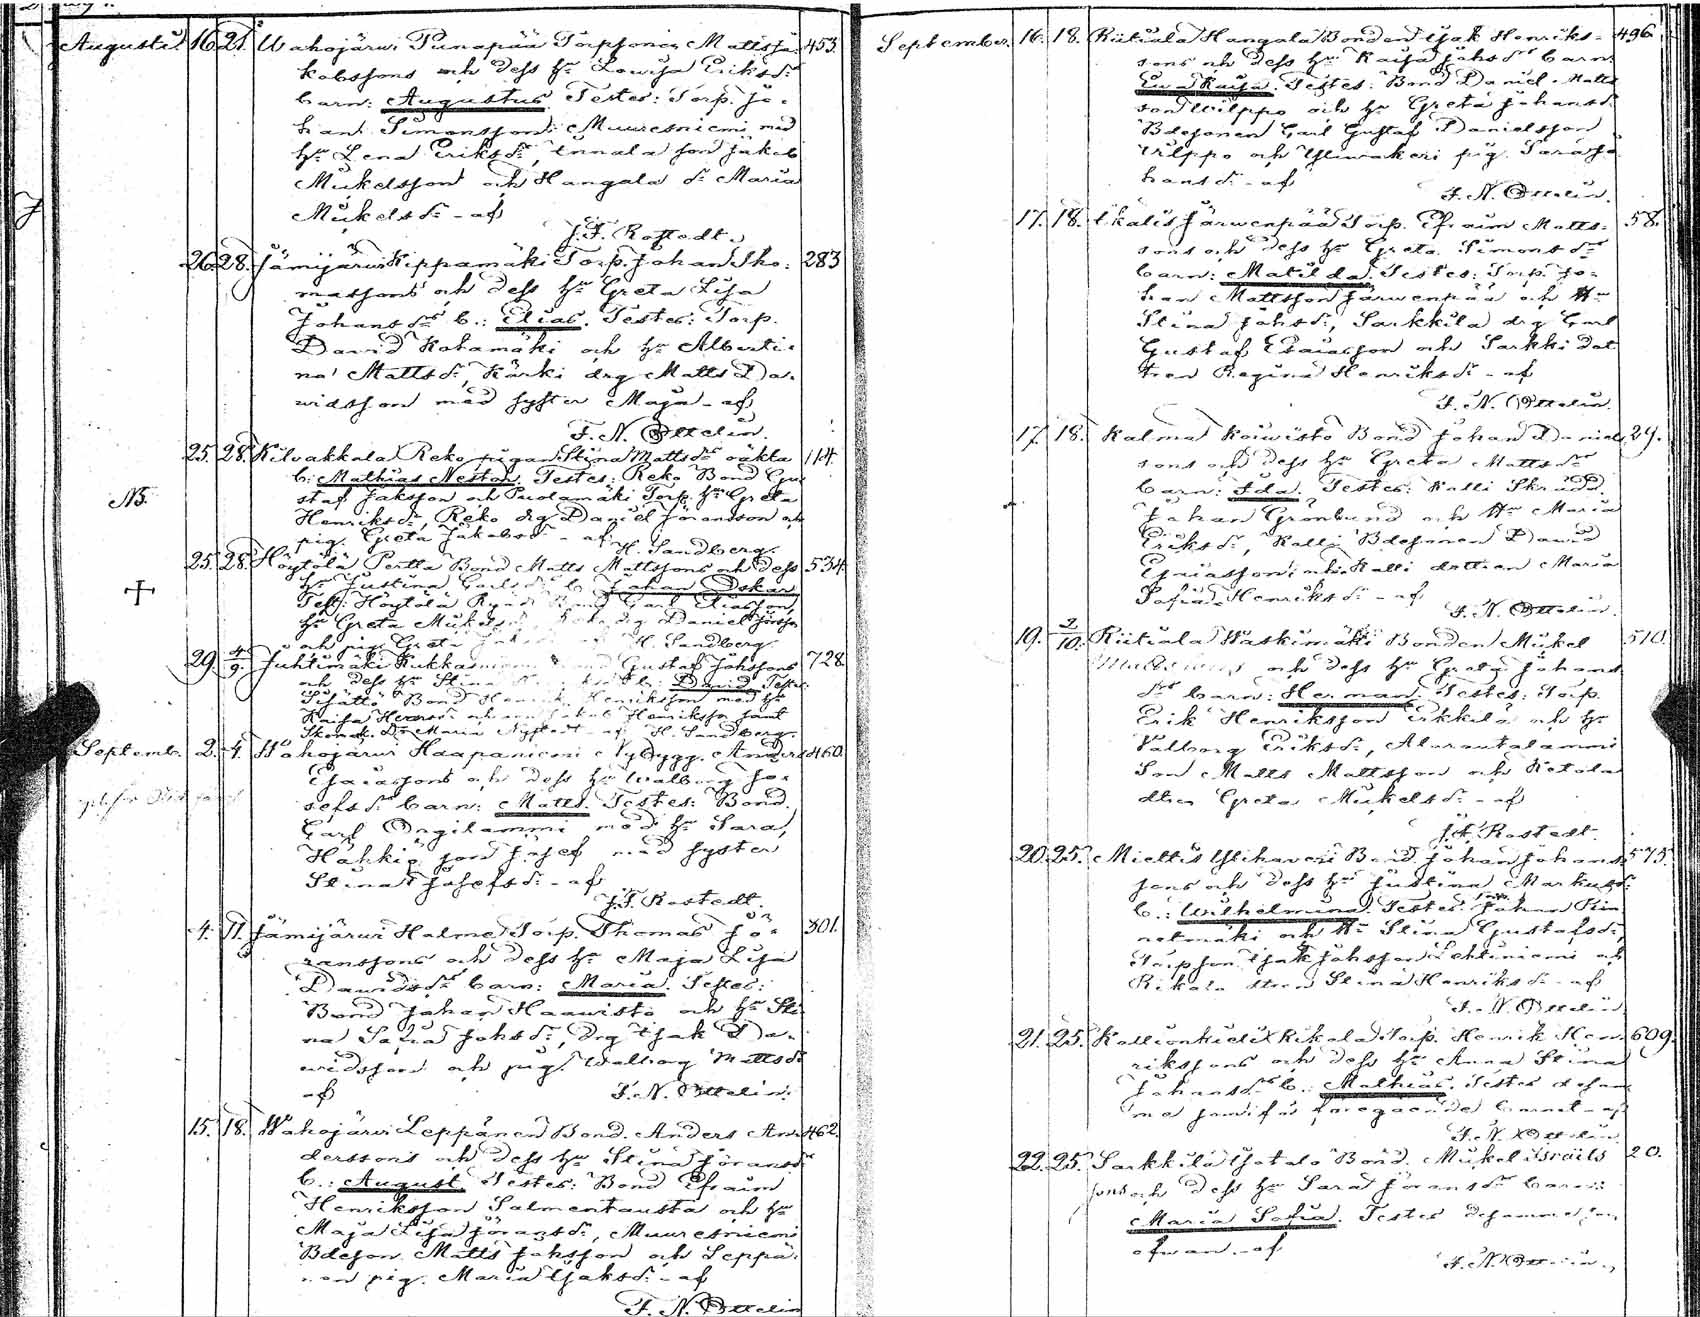 Augusti 16. 21. Wahojärwi Punapää Torpsonens Matts Ja- 453.
kobssons och dess hu Lowisa Eriksdrs
barn: Augustus. Testes: Torp. Jo-
han Simonsson Muuresniemi med
hu Lena Eriksdr, Innala son Jakob
Mickelsson och Hangala dr Maria
Mickelsdr - af
J. F. Rostedt.
26. 28. Jämijärwi Kippamäki Torp. Johan Tho- 283
massons och dess hu Greta Lisa
Johansdrs b.: Elias. Testes: Torp.
David Kotamäki och hu Alberti-
na Mattsdr, Kärki drg Matts Da-
vidsson med syster Maja - af
F. N. Ottelin.
25. 28. Kilvakkala Reko pigan Stina Mattsdrs oäkta 114.
NB.
b: Mathias Nestor. Testes: Reko Bond Gu-
staf Jaksson och Puolamäki Torp. hu Greta
Henriksdr, Reko drg Daniel Göransson och
pig. Greta Jakobsdr - af H. Sandberg.
25. 28. Höytölä Pertta Bond Matts Mattssons och dess 534
hu Justina Carlsdrs b. Johan Oskar
Test: Höytölä Bond Carl Eliasson,
hu Greta Mickelsdr drg Daniel
och pig. Greta H. Sandberg
29. 4/9. Juhtimäki Kukkasniemi Bond Gustaf Johssons 728
och dess hu Stina b: David. Testes:
Bond Henrik Henriksson med hu
Kaisa och Henriksson samt
Dr Maria af H. Sandberg.
Septemb. 2. 4. Wahojärwi Haapaniemi Nybygg. Anders 460.
Esaiassons och dess hu Walborg Jo-
sefsdr barn: Matts. Testes: Bond.
Carl Ongilammi med hu Sara,
Häkkiä son Josef med syster
Stina Josefsdr - af
J. F. Rostedt.
4. 11. Jämijärwi Halme Torp. Thomas Gö- 301.
ranssons och dess hu Maja Lisa
Davidsdrs barn: Maria. Testes:
Bond Johan Haawisto och hu Sti-
na Sofia Johsdr, drg Isak Da-
widsson och pig. Walborg Mattsdr
- af F. N. Ottelin.
15. 18. Wahojärwi Leppänen Bond. Anders An- 462.
derssons och dess hu Stina Göransdrs
b.: August. Testes: Bond Efraim
Henriksson Salmentausta och hu
Maja Lisa Göransdr, Muuresniemi
Bdeson Matts Jaksson och Leppä-
nen pig. Maria Isaksdr - af
F. N. Ottelin
September. 16. 18. Riitiala Hangala Bonden Isak Henriks- 496
sons och dess hu Kaisa Johsdrs barn:
Eva Kaisa. Testes: Bond Daniel Matts
son Wilppo och hu Greta Johansdr
Bdesonen Carl Gustaf Danielsson
Wilppo och Yliwakeri pig. Sara Jo-
hansdr - af
F. N. Ottelin.
17. 18. Ikalis Järwenpää Torp. Efraim Matts- 58.
sons och dess hu Greta Simonsdrs
barn: Matilda. Testes: Torp. Jo-
han Mattsson Järwenpää och Hu
Stina Johsdr, Sarkkila drg Carl
Gustaf Esaiasson och Sarkki dot
tren Regina Henriksdr - af
F. N. Ottelin.
17. 18. Kalma Koiwisto Bond Johan Daniels 29.
sons och dess hu Greta Mattsdrs
barn: Ida. Testes: Kalli Skrädd.
Johan Grönlund och Hu Maria
Eriksdr, Kalli Bdesonen David
Esaiasson och Kalli dottren Maria
Sofia Henriksdr - af
F. N. Ottelin.
19. 2/10. Riitiala Waskimäki Bonden Mickel 510.
och dess hu Greta Johans
drs barn: Herman. Testes: Torp.
Erik Henriksson Erkkilä och hu
Valborg Eriksdr, Alarautalammi
son Matts Mattsson och Ketola
dtren Greta Mickelsdr - af
J. F. Rostedt.
20. 25. Miettis Ylihaveri Bond. Johan Johans 575.
sons och dess hu Justina Markusdr:
b.: Wilhelmina. Testes: Torp. Johan Kin
netmäki och Hu Stina Gustafsdr,
Torpson Isak Johsson Lehtiniemi och
Rikala dtren Stina Henriksdr - af
F. N. Ottelin
21. 25. Kallionkieli Rikala Torp. Henrik Hen- 609.
rikssons och dess hu Anna Stina
Johansdrs b.: Mathias. Testes desam
ma som för föregående barnet - af
F. N. Ottelin
22. 25. Sarkkila Yotalo Bond. Mickel Israels 20.
sons och dess hu Sara Göransdrs barn:
Maria Sofia. Testes desamme som
ofwan - af
F. N. Ottelin.